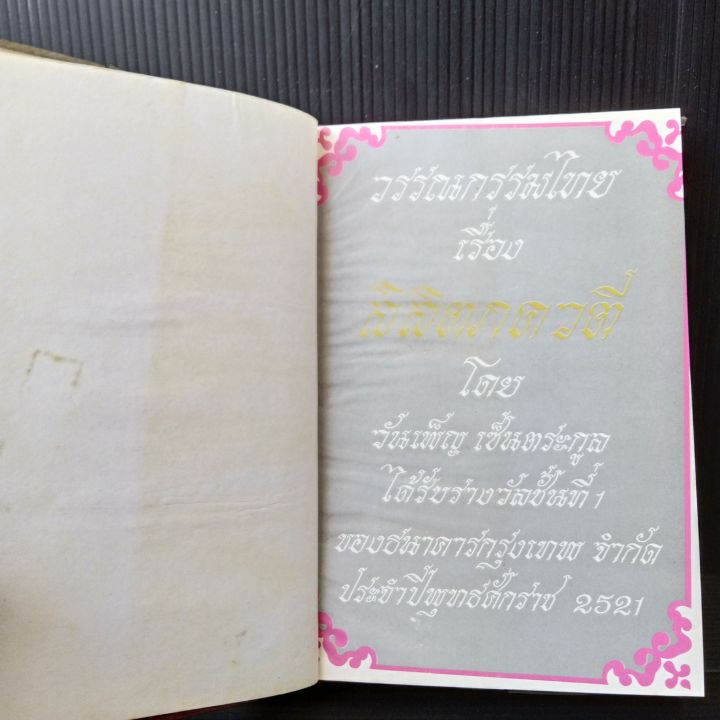 วรรณกรรมไทย
เรื่อง
ลิลิตภควตี
โดย
วันเพ็ญ เซ็นตระกูล
ได้รับรางวัลชั้นที่ 1
ของธนาคารกรุงเทพ จำกัด
ประจำปีพุทธศักราช 2521